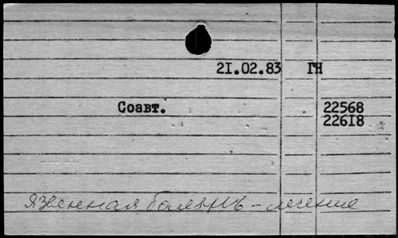 21.02.83 ГН
Соавт. 22568
22618
Язвенная болезнь - лечение